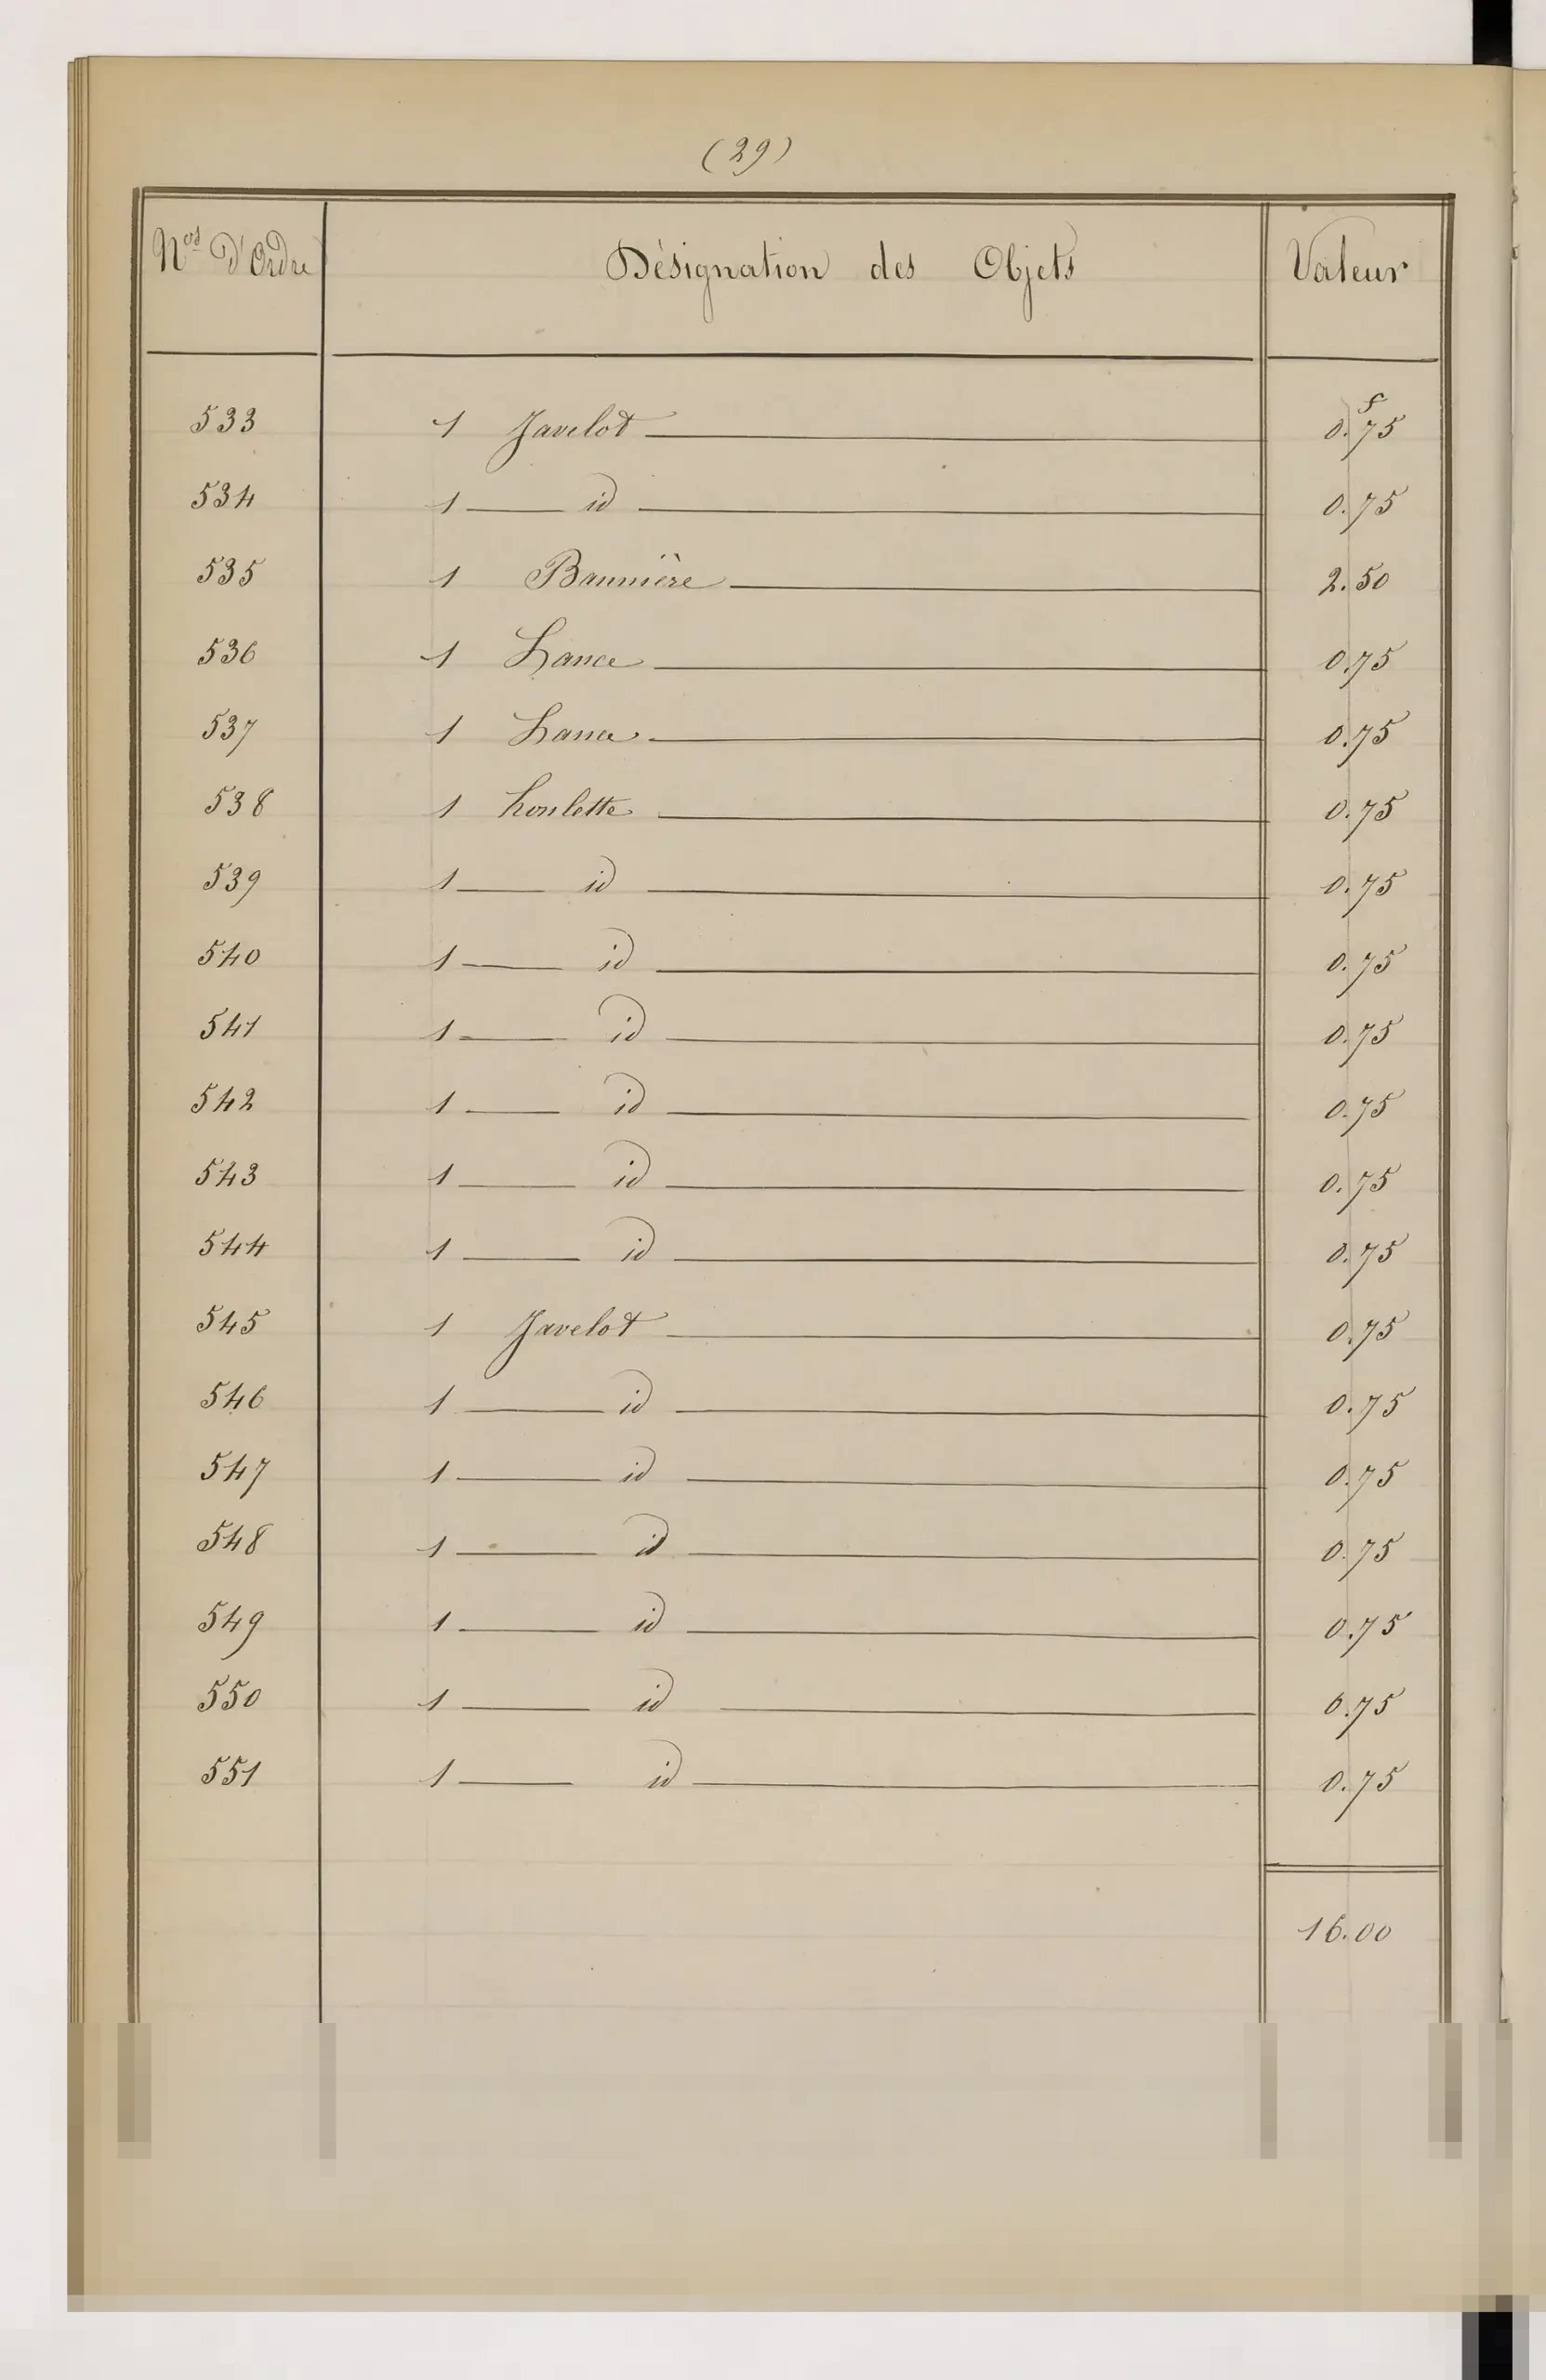 (29)
Nos D'Ordre Désignation des Objets Valeur
533 1 Javelot 0.f75
534 1 id 0.75
535 1 Bannière 2.50
536 1 Lance 0.75
537 1 Lance 0.75
538 1 houlette 0.75
539 1 id 0.75
540 1 id 0.75
541 1 id 0.75
542 1 id 0.75
543 1 id 0.75
544 1 id 0.75
545 1 Javelot 0.75
546 1 id 0.75
547 1 id 0.75
548 1 id 0.75
549 1 id 0.75
550 1 id 0.75
551 1 id 0.75
16.00